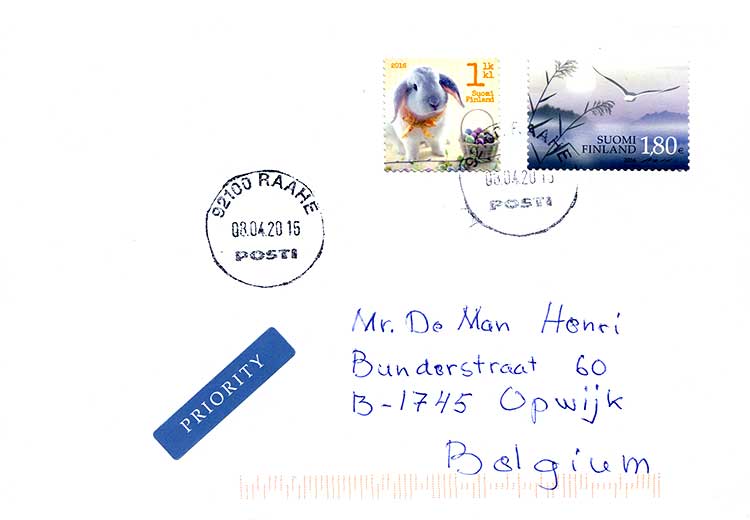 2016
1 lk
kl
Suomi
Finland
SUOMI
FINLAND 1,80€
2016
92100 RAAHE
03.04.20 15
POSTI
RAAHE
03.04.20 15
POSTI
PRIORITY
Mr. De Man Henri
Bunderstraat 60
B-1745 Opwijk
Belgium